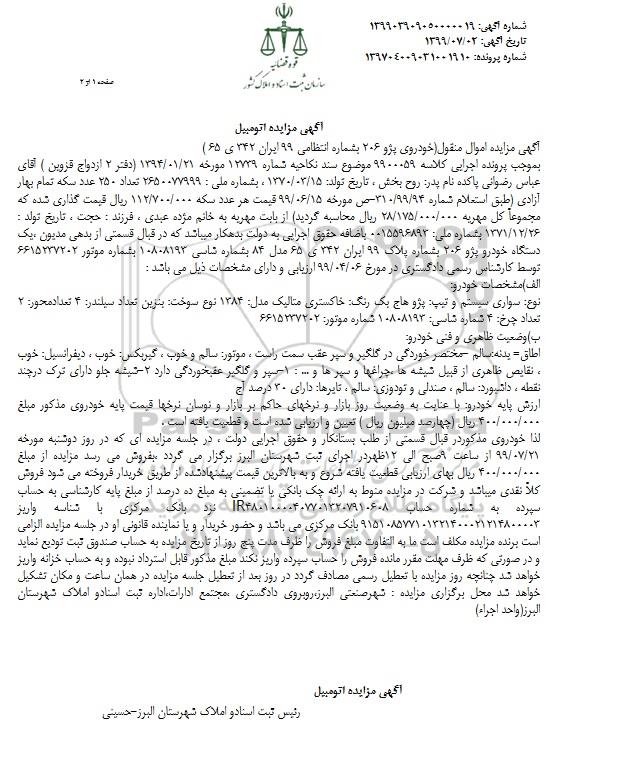 شماره آگهی: ۱۳۹۹۰۳۹۰۹۰۵۰۰۰۰۰۱۹
تاریخ آگهی: ۱۳۹۹/۰۷/۰۲
شماره پرونده: ۱۳۹۷۰۴۰۰۹۰۳۱۰۰۱۹۱۰
قوه قضائیه
سازمان ثبت اسناد و املاک کشور
صفحه ۱ از ۲
آگهی مزایده اتومبیل
آگهی مزایده اموال منقول(خودروی پژو ۲۰۶ بشماره انتظامی ۹۹ ایران ۳۴۲ ی ۶۵ )
بموجب پرونده اجرایی کلاسه ۹۹۰۰۰۵۹ موضوع سند نکاحیه شماره ۱۲۷۳۹ مورخه ۱۳۹۴/۰۱/۲۱ (دفتر ۲ ازدواج قزوین ) آقای
عباس رضوانی پاکده نام پدر: روح بخش ، تاریخ تولد: ۱۳۷۰/۰۳/۱۵ ، بشماره ملی : ۲۶۵۰۰۷۷۹۹۹ تعداد ۲۵۰ عدد سکه تمام بهار
آزادی (طبق استعلام شماره ۳۱۰/۹۹/۹۴-ص مورخه ۹۹/۰۶/۱۵ قیمت هر عدد سکه ۱۱۲/۷۰۰/۰۰۰ ریال قیمت گذاری شده که
مجموعاً کل مهریه ۲۸/۱۷۵/۰۰۰/۰۰۰ ریال محاسبه گردید) از بابت مهریه به خانم مژده عبدی ، فرزند : حجت ، تاریخ تولد :
۱۳۷۱/۱۲/۲۶ بشماره ملی: ۰۰۱۵۵۹۶۸۹۳ باضافه حقوق اجرایی به دولت بدهکار میباشد که در قبال قسمتی از بدهی مدیون ،یک
دستگاه خودرو پژو ۲۰۶ بشماره پلاک ۹۹ ایران ۳۴۲ ی ۶۵ مدل ۸۴ بشماره شاسی ۱۰۸۰۸۱۹۳ بشماره موتور ۶۶۱۵۲۳۷۲۰۲
توسط کارشناس رسمی دادگستری در مورخ ۹۹/۰۴/۰۶ ارزیابی و دارای مشخصات ذیل می باشد :
الف)مشخصات خودرو:
نوع: سواری سیستم و تیپ: پژو هاچ بک رنگ: خاکستری متالیک مدل: ۱۳۸۴ نوع سوخت: بنزین تعداد سیلندر: ۴ تعدادمحور: ۲
تعداد چرخ: ۴ شماره شاسی: ۱۰۸۰۸۱۹۳ شماره موتور: ۶۶۱۵۲۳۷۲۰۲
ب)وضعیت ظاهری و فنی خودرو:
اطاق= بدنه:سالم –مختصر خوردگی در گلگیر و سپر عقب سمت راست ، موتور: سالم و خوب ، گیربکس: خوب ، دیفرانسیل: خوب
، نقایص ظاهری از قبیل شیشه ها ،چراغها و سپر ها و ... : ۱-سپر و گلگیر عقبخوردگی دارد ۲-شیشه جلو دارای ترک درچند
نقطه ، داشبورد: سالم ، صندلی و تودوزی: سالم ، تایرها: دارای ۳۰ درصد آج
ارزش پایه خودرو: با عنایت به وضعیت روز بازار و نرخهای حاکم بر بازار و نوسان نرخها قیمت پایه خودروی مذکور مبلغ
۴۰۰/۰۰۰/۰۰۰ ریال (چهارصد میلیون ریال ) تعیین و ارزیابی شده است و قطعیت یافته است .
لذا خودروی مذکوردر قبال قسمتی از طلب بستانکار و حقوق اجرایی دولت ، در جلسه مزایده ای که در روز دوشنبه مورخه
۹۹/۰۷/۲۱ از ساعت ۹صبح الی ۱۲ظهردر اجرای ثبت شهرستان البرز برگزار می گردد ،بفروش می رسد مزایده از مبلغ
۴۰۰/۰۰۰/۰۰۰ ریال بهای ارزیابی قطعیت یافته شروع و به بالاترین قیمت پیشنهادشده از طریق خریدار فروخته می شود فروش
کلاً نقدی میباشد و شرکت در مزایده منوط به ارائه چک بانکی یا تضمینی به مبلغ ده درصد از مبلغ پایه کارشناسی به حساب
سپرده به شماره حساب IR۴۸۰۱۰۰۰۰۴۰۷۷۰۱۳۲۰۷۹۱۰۶۰۸ نزد بانک مرکزی با شناسه واریز
۹۱۵۱۰۸۵۷۷۱۰۱۳۲۱۴۰۰۰۲۱۲۱۴۸۰۰۰۰۳ بانک مرکزی می باشد و حضور خریدار و یا نماینده قانونی او در جلسه مزایده الزامی
است برنده مزایده مکلف است ما به التفاوت مبلغ فروش را ظرف مدت پنج روز از تاریخ مزایده به حساب صندوق ثبت تودیع نماید
و در صورتی که ظرف مهلت مقرر مانده فروش را حساب سپرده واریز نکند مبلغ مذکور قابل استرداد نبوده و به حساب خزانه واریز
خواهد شد چنانچه روز مزایده با تعطیل رسمی مصادف گردد در روز بعد از تعطیل جلسه مزایده در همان ساعت و مکان تشکیل
خواهد شد محل برگزاری مزایده : شهرصنعتی البرز،روبروی دادگستری ،مجتمع ادارات،اداره ثبت اسنادو املاک شهرستان
البرز(واحد اجراء)
آگهی مزایده اتومبیل
رئیس ثبت اسنادو املاک شهرستان البرز-حسینی